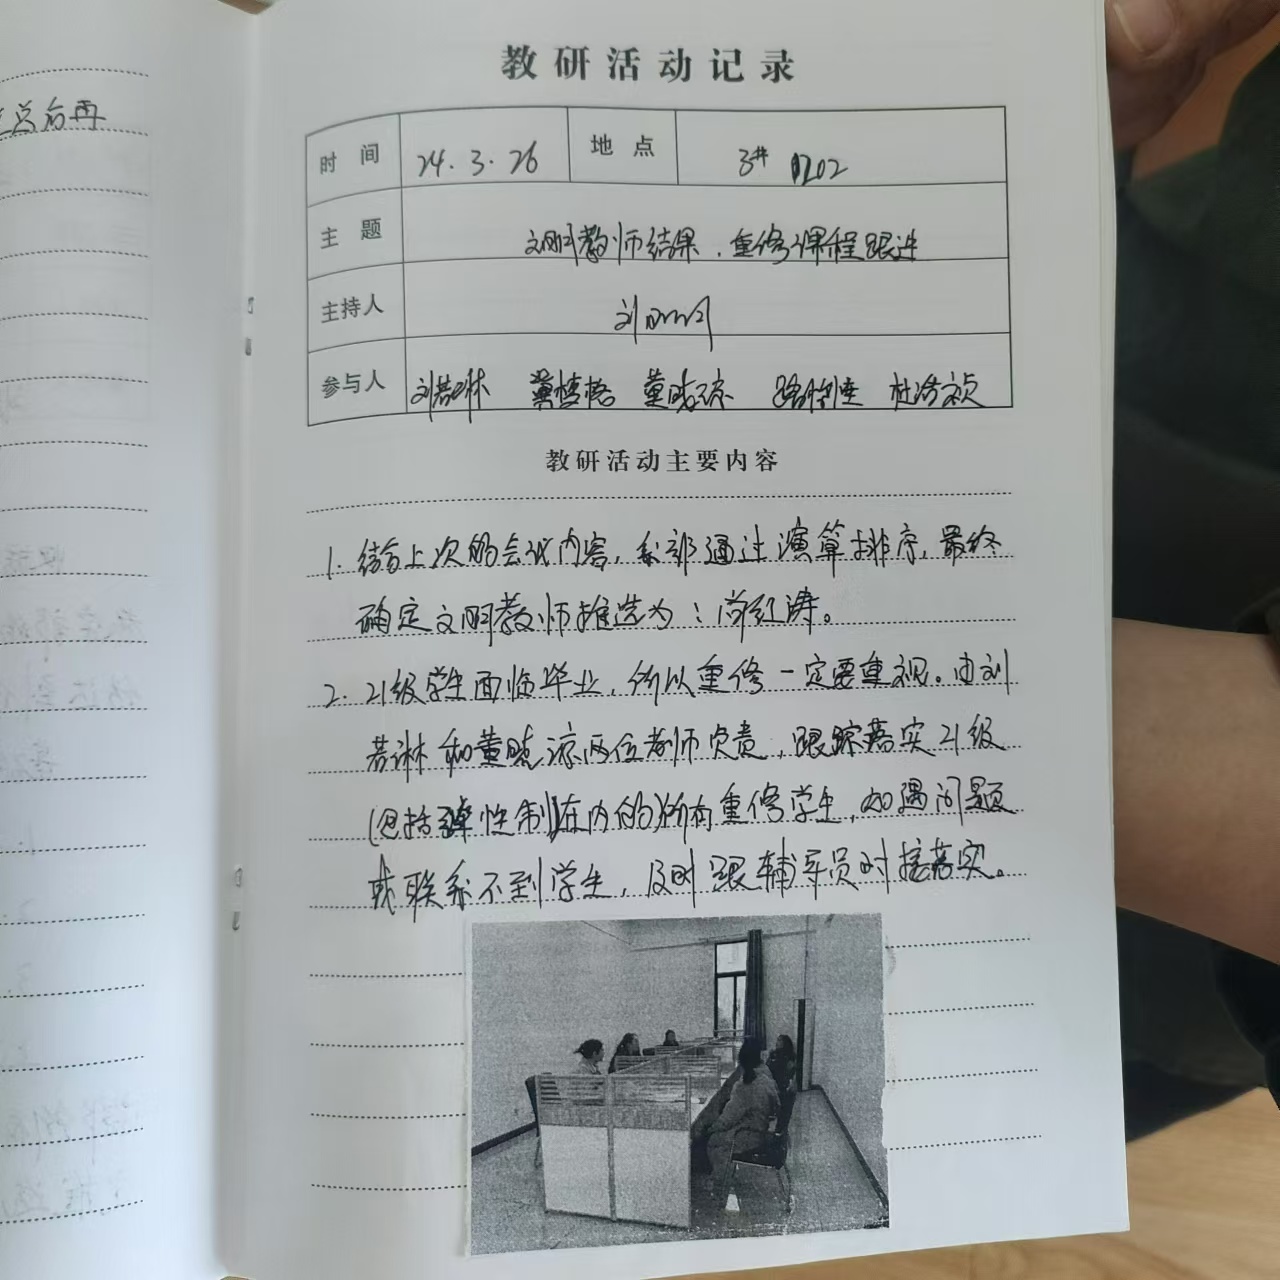 总后再
教研活动记录
时间 24.3.26 地点 3# 1202
主题 文明教师结果、重修课程跟进
主持人 刘
参与人 刘若琳 冀慧格 董晓琼 杜浩祯
教研活动主要内容
1. 结合上次的会议内容，系部通过演算排序，最终
确定文明教师推选为：尚红涛。
2. 21级学生面临毕业，所以重修一定要重视。由刘
若琳和董晓琼两位老师负责，跟踪落实21级
(包括弹性制在内的)所有重修学生，如遇问题
或联系不到学生，及时跟辅导员对接落实。